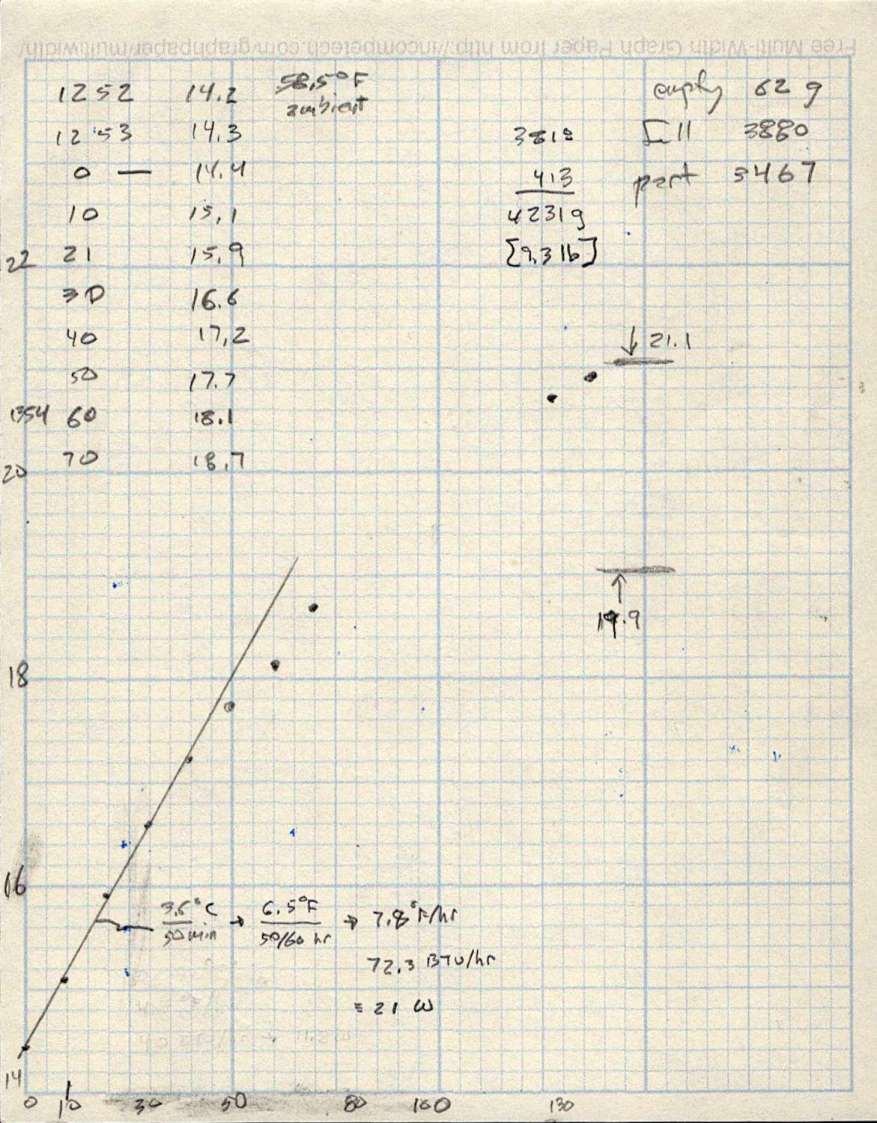 Free Multi-Width Graph Paper from http://incompetech.com/graphpaper/multiwidth/
12 52 14.2 58.5°F
ambient
12:53 14.3
0 — 14.4
10 15.1
21 15.9
30 16.6
40 17.2
50 17.7
1354 60 18.1
70 18.7
empty 62 g
full 3880
part 3467
413
4231g
[9.3 lb]
22
20
18
16
14
↓ 21.1
↑
19.9
3.6°C / 50 min → 6.5°F / 50/60 hr → 7.8°F/hr
72.3 BTU/hr
= 21 W
0 10 30 50 80 100 130